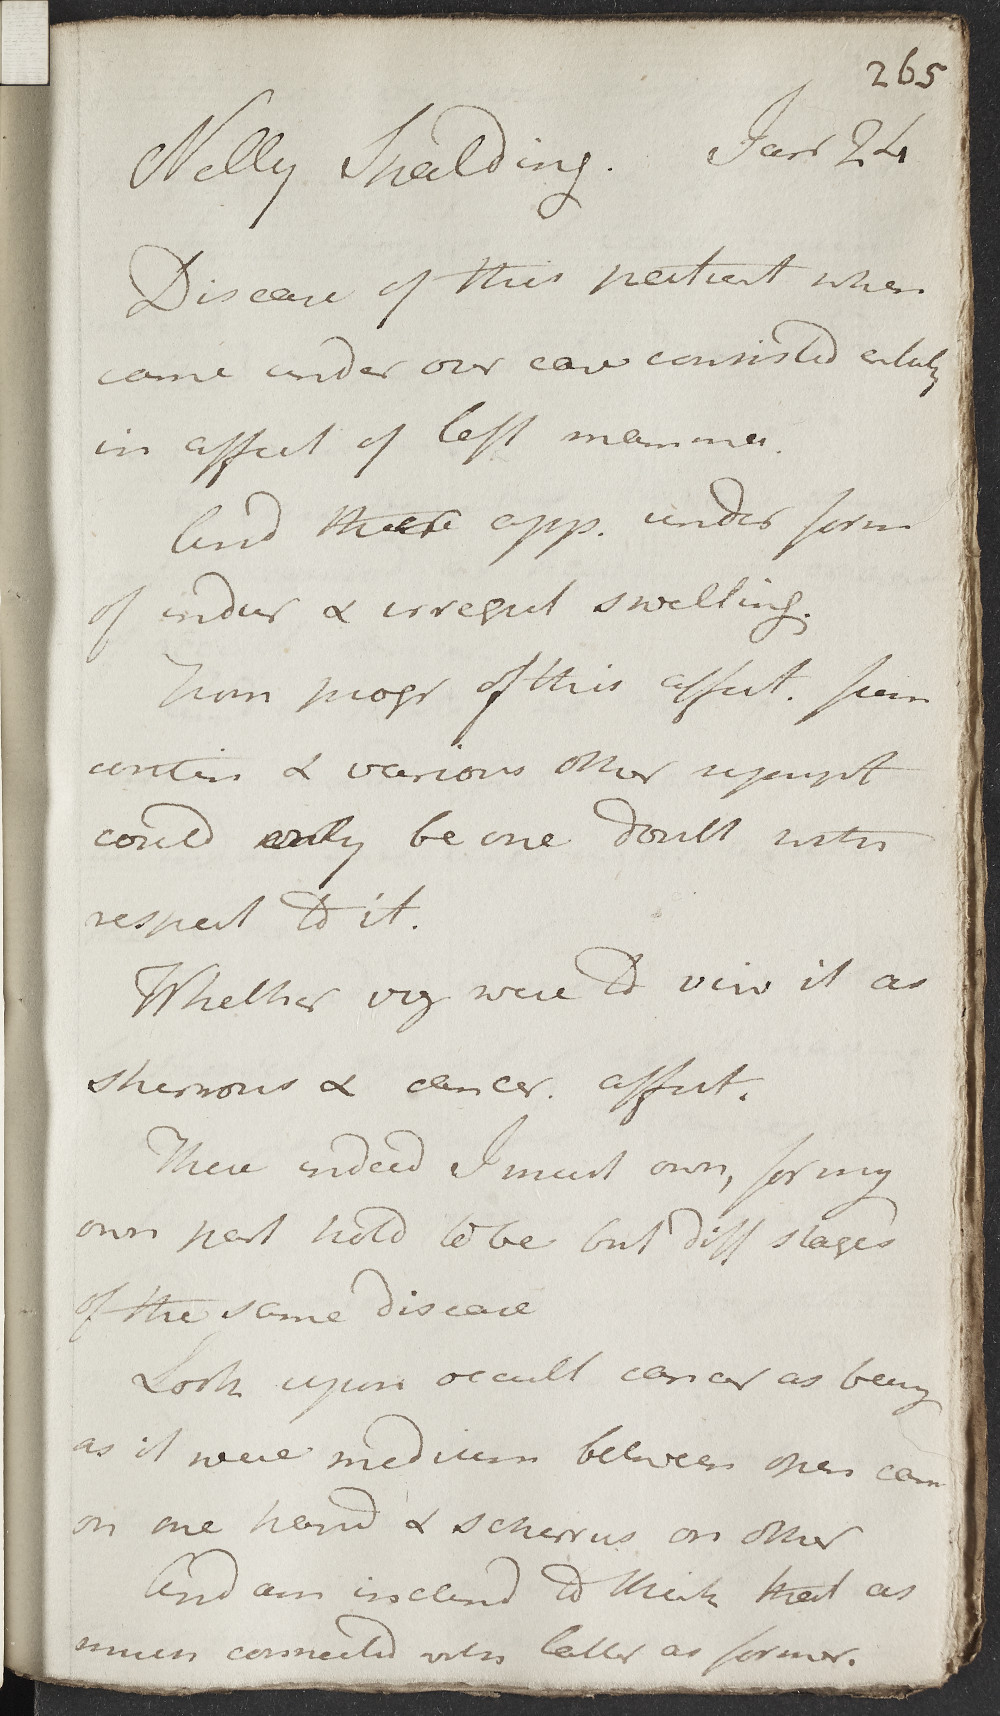 265
Nelly Spalding. Jan 24
Disease of this patient when
came under our care consisted entirely
in affect of left mamma.
And there app. under form
of indur & irregul swelling.
From progr of this affect. pain
contin & various other
could only be one doubt with
respect to it.
Whether we were to view it as
shirrous & cancer. affect.
These indeed I must own, for my
own part hold to be but diff stages
of the same disease
Look upon occult cancer as being
as it were medium between open canc
on one hand & schirrus on other
And am inclend to think that as
much connected with latter as former.